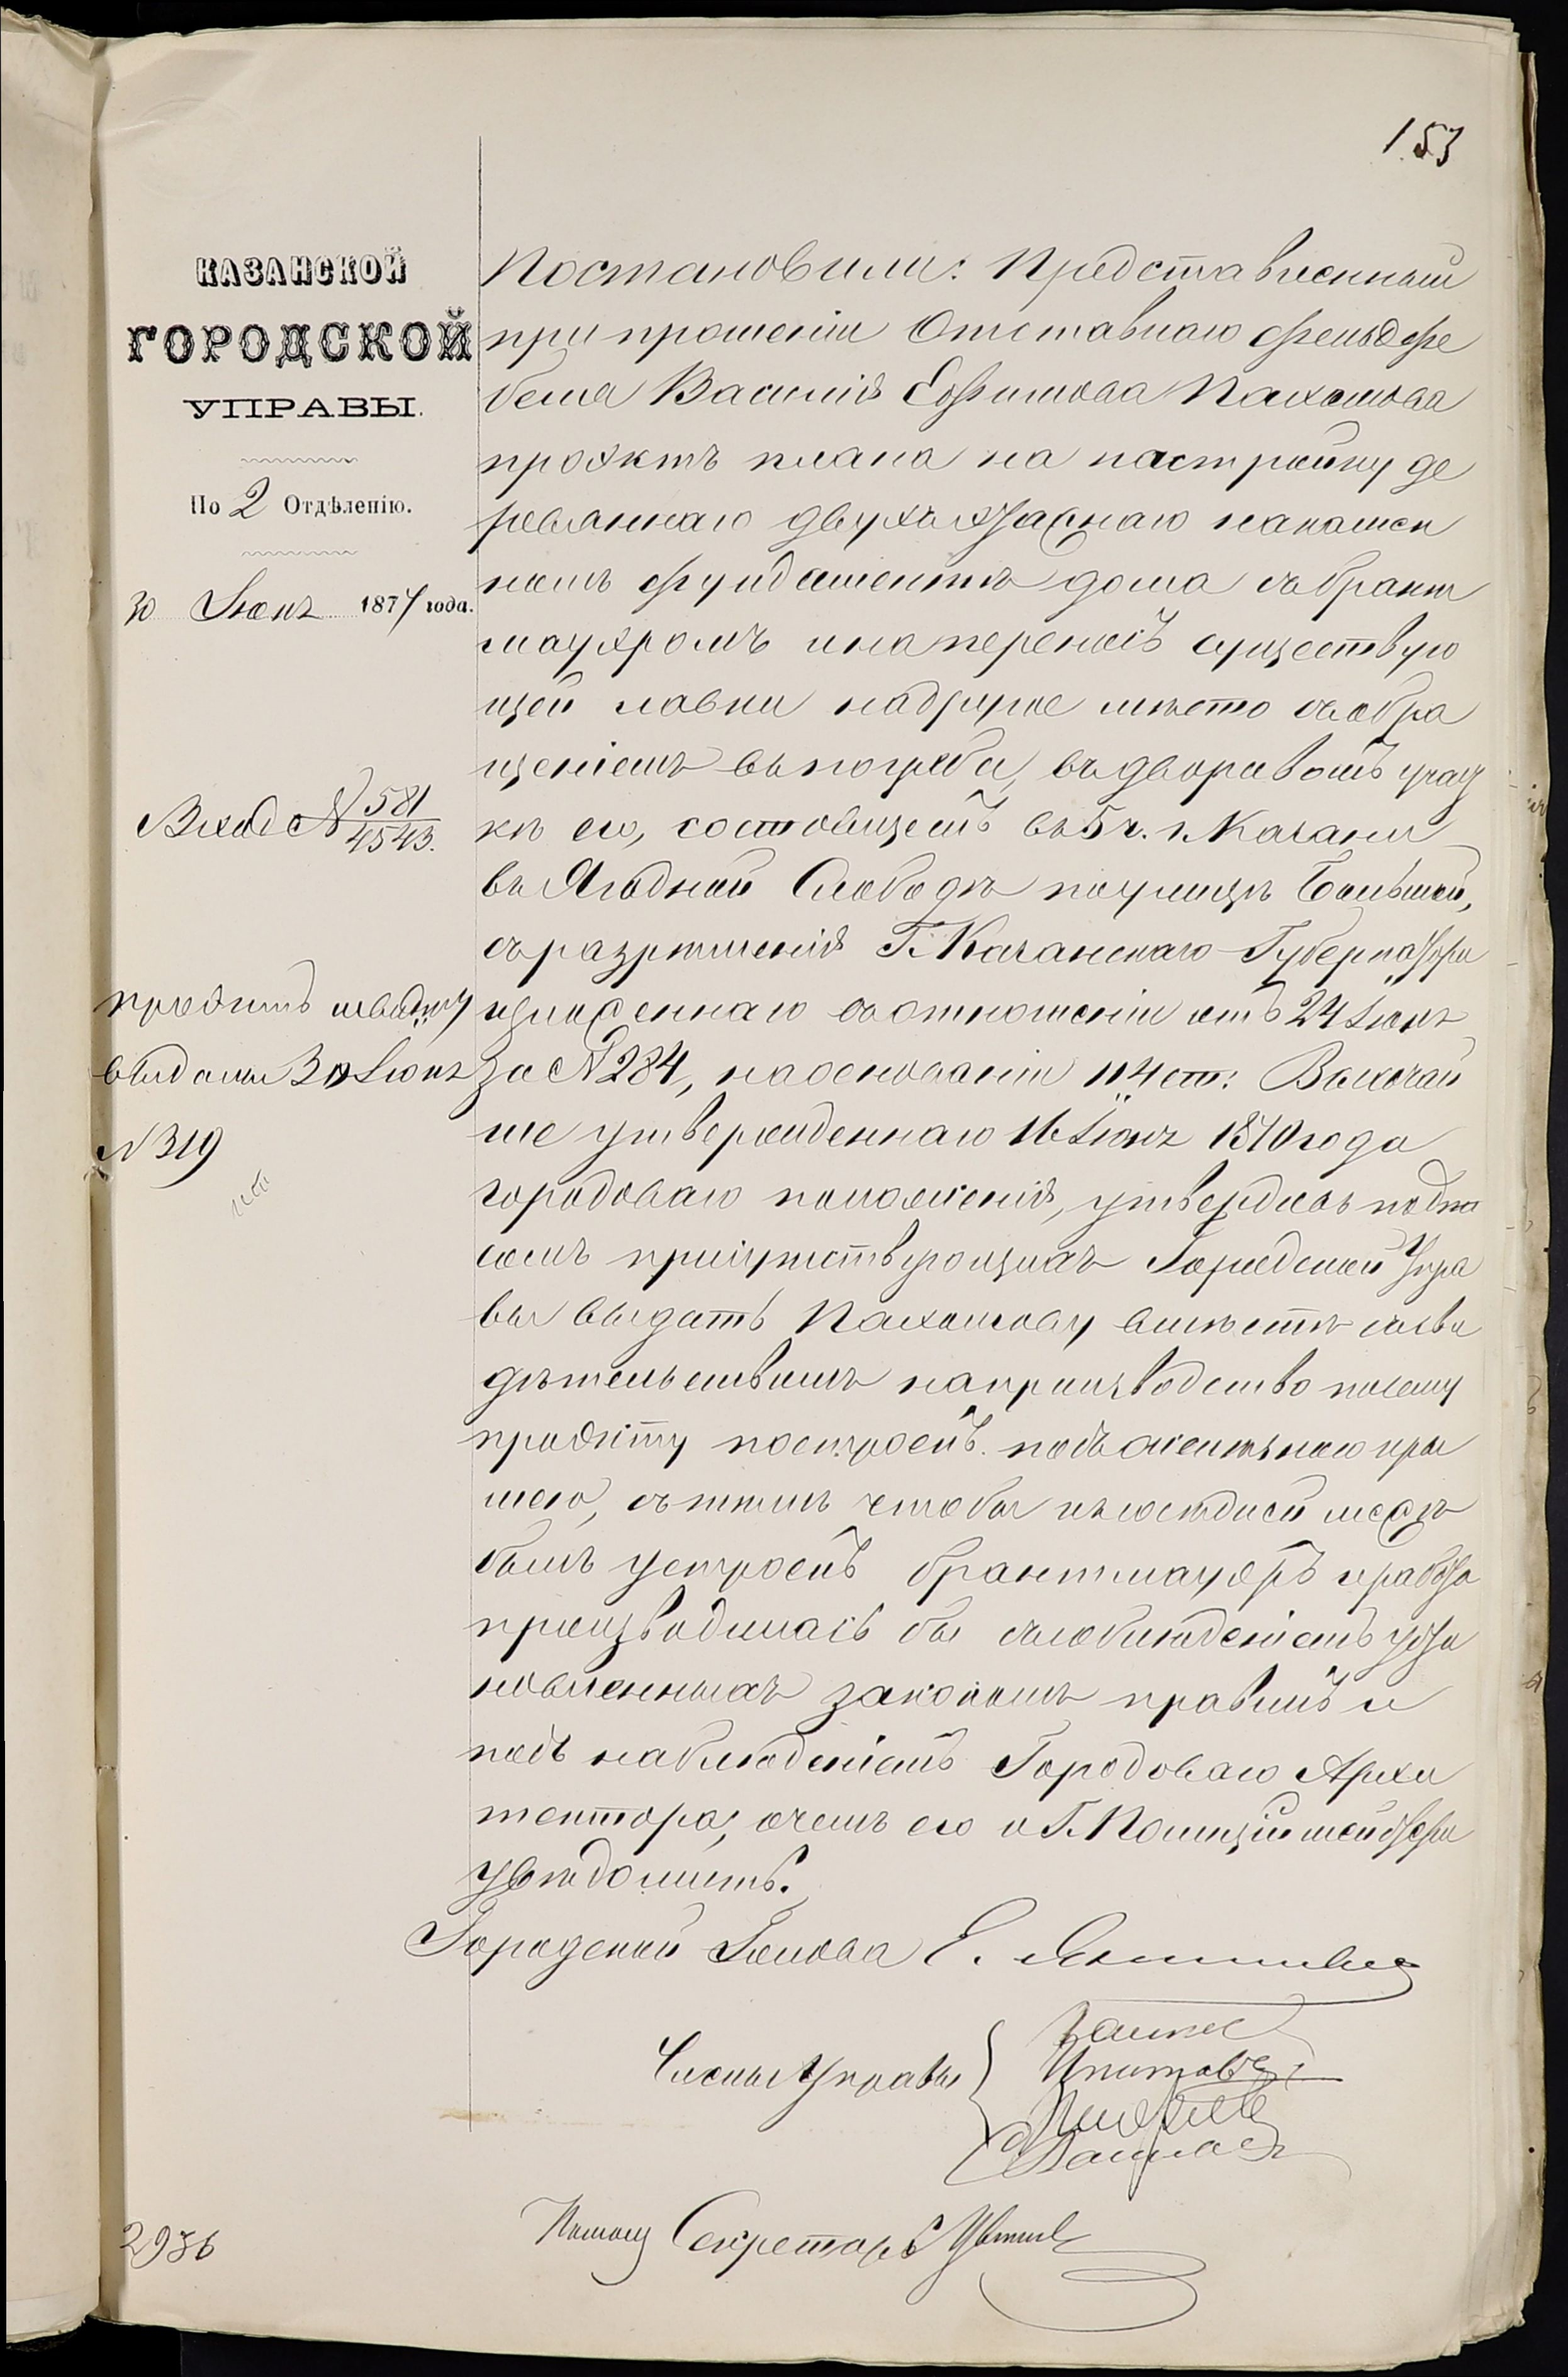 153
КАЗАНСКОЙ
ГОРОДСКОЙ
УПРАВЫ.
По 2 Отдѣленію.
30 Іюня 1877 года.
Вход № 581/4543.
выданы 30 Іюня
№ 319
Постановили: Представленный
при прошеніи Отставнаго фельдфе
беля Василія Ефимова Пахомова
проэктъ плана на постройку де
ревяннаго двухъэтажнаго на камен
номъ фундаментѣ дома съ брант
мауэромъ и на переносъ существую
щей лавки на другое мѣсто съ обра
щеніемъ въ погребъ, въ дворовомъ участ
кѣ его, состоящемъ въ 5 ч. г. Казани
въ Ягодной Слободѣ по улицѣ Большой,
съ разрѣшенія Г. Казанскаго Губернатора
изложеннаго въ отношеніи отъ 24 Іюня
за № 284, на основаніи 114 ст: Высочай
ше утвержденнаго 16 Іюня 1870 года
городоваго положенія, утвердивъ подпи
сомъ присутствующихъ Городской Упра
вы выдать Пахомову вмѣстѣ съ сви
дѣтельствомъ на производство по сему
проэкту построекъ подъ желѣзною кры
шею, съ тѣмъ чтобы къ сосѣдней межѣ
былъ устроенъ брантмауэръ и работа
производилась бы съ соблюденіемъ уста
новленныхъ закономъ правилъ и
подъ наблюденіемъ Городоваго Архи
тектора; о чемъ его и Г. Полиціймейстера
увѣдомить.
Городской Голова Е.
Члены Управы
Помощ Секретаря
2936